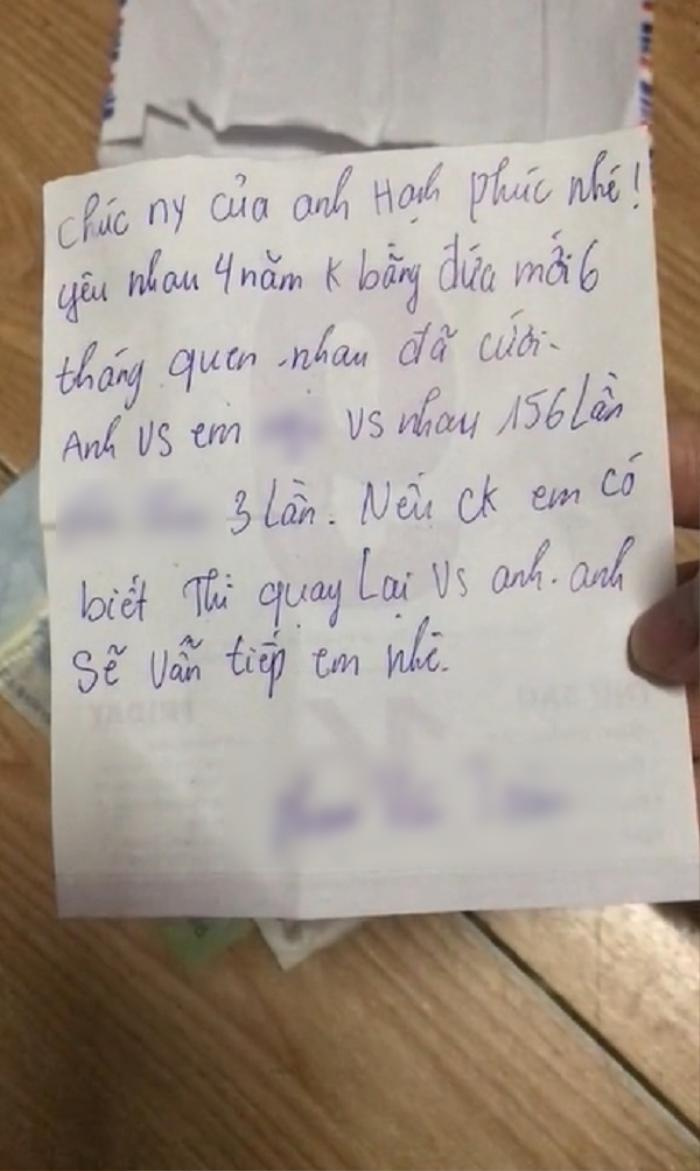 Chúc ny của anh Hạnh phúc nhé!
yêu nhau 4 năm K bằng đứa mới 6
tháng quen nhau đã cưới.
Anh vs em vs nhau 156 Lần
3 Lần. Nếu ck em có
biết Thì quay Lại vs anh. anh
Sẽ vẫn tiếp em nhé.
FRIDAY